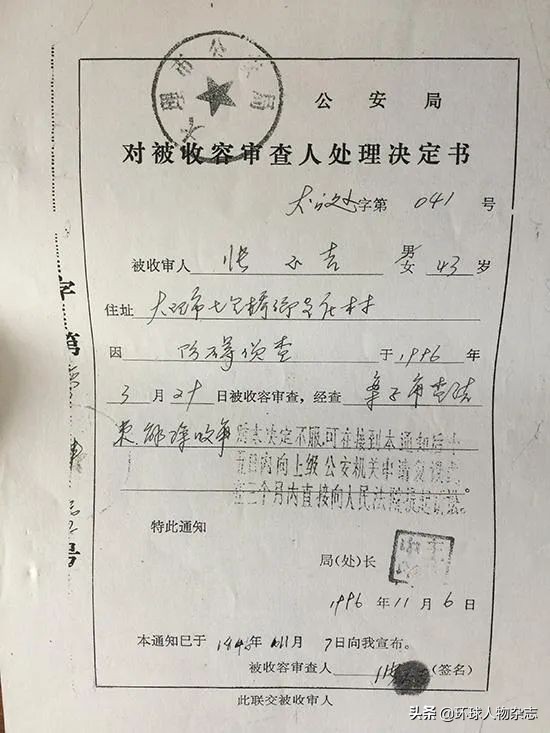 大理市公安局
公安局
对被收容审查人处理决定书
字第 041 号
被收审人 张小吉 男/女 43 岁
住址 大理市七里桥乡 村
因 妨碍侦查 于1996年
3月2 日被收容审查，经查
，解除收审
对本决定不服，可在接到本通知后十
五日内向上级公安机关申请复议或
在三个月内直接向人民法院提起诉讼。
特此通知
局(处)长
1996年11月6日
本通知已于 年 月7日向我宣布。
被收容审查人 (签名)
此联交被收审人
字第
号
头条 @环球人物杂志